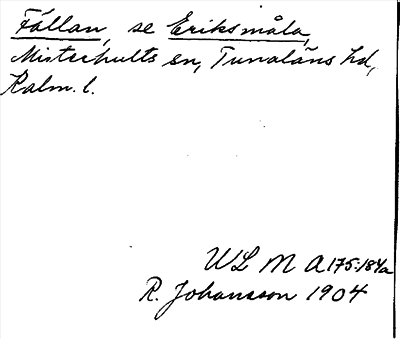 Fällan, se Eriksmåla,
Misterhults sn, Tunaläns hd,
Kalm. l.
ULMA 175:184a
R. Johansson 1904